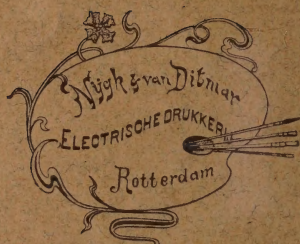 Nijgh & van Ditmar
ELECTRISCHE DRUKKERIJ
Rotterdam